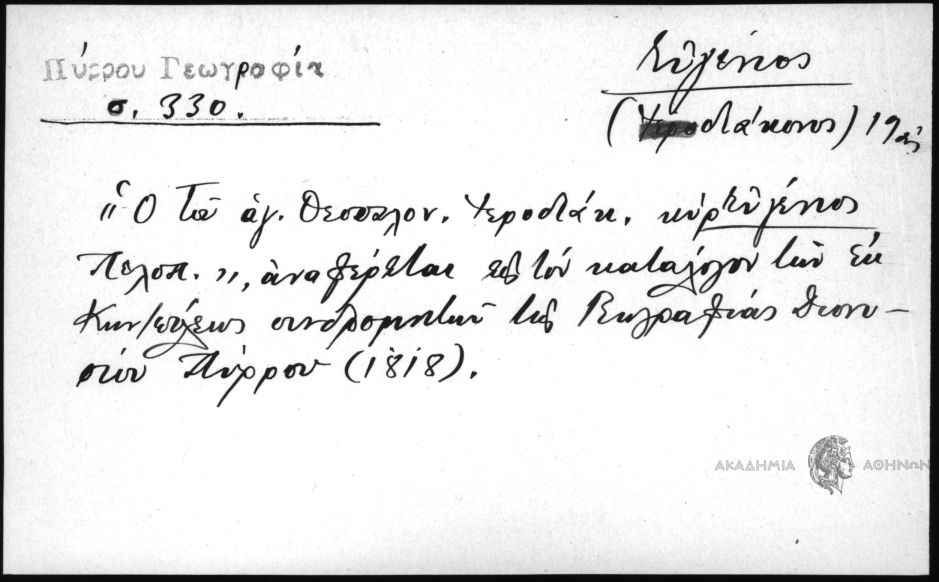 Πύρρου Γεωγραφία
σ. 330.
Εὐγένιος
(Ἱεροδιάκονος) 19ος
"Ὁ Τῶ ἁγ. Θεσσαλον. Ἱεροδιάκ. κύρ Εὐγένιος
Πελοπ.", ἀναφέρεται εἰς τόν κατάλογον τῶν ἐκ
Κων/πόλεως συνδρομητῶν τῆς Γεωγραφίας Διονυ-
σίου Πύρρου (1818).
ΑΚΑΔΗΜΙΑ ΑΘΗΝΩΝ